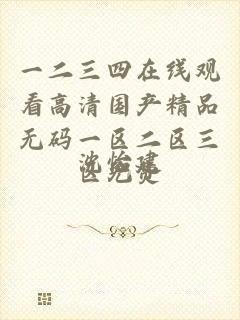 一二三四在线观
看高清国产精品
无码一区二区三
区免费
沈怡建